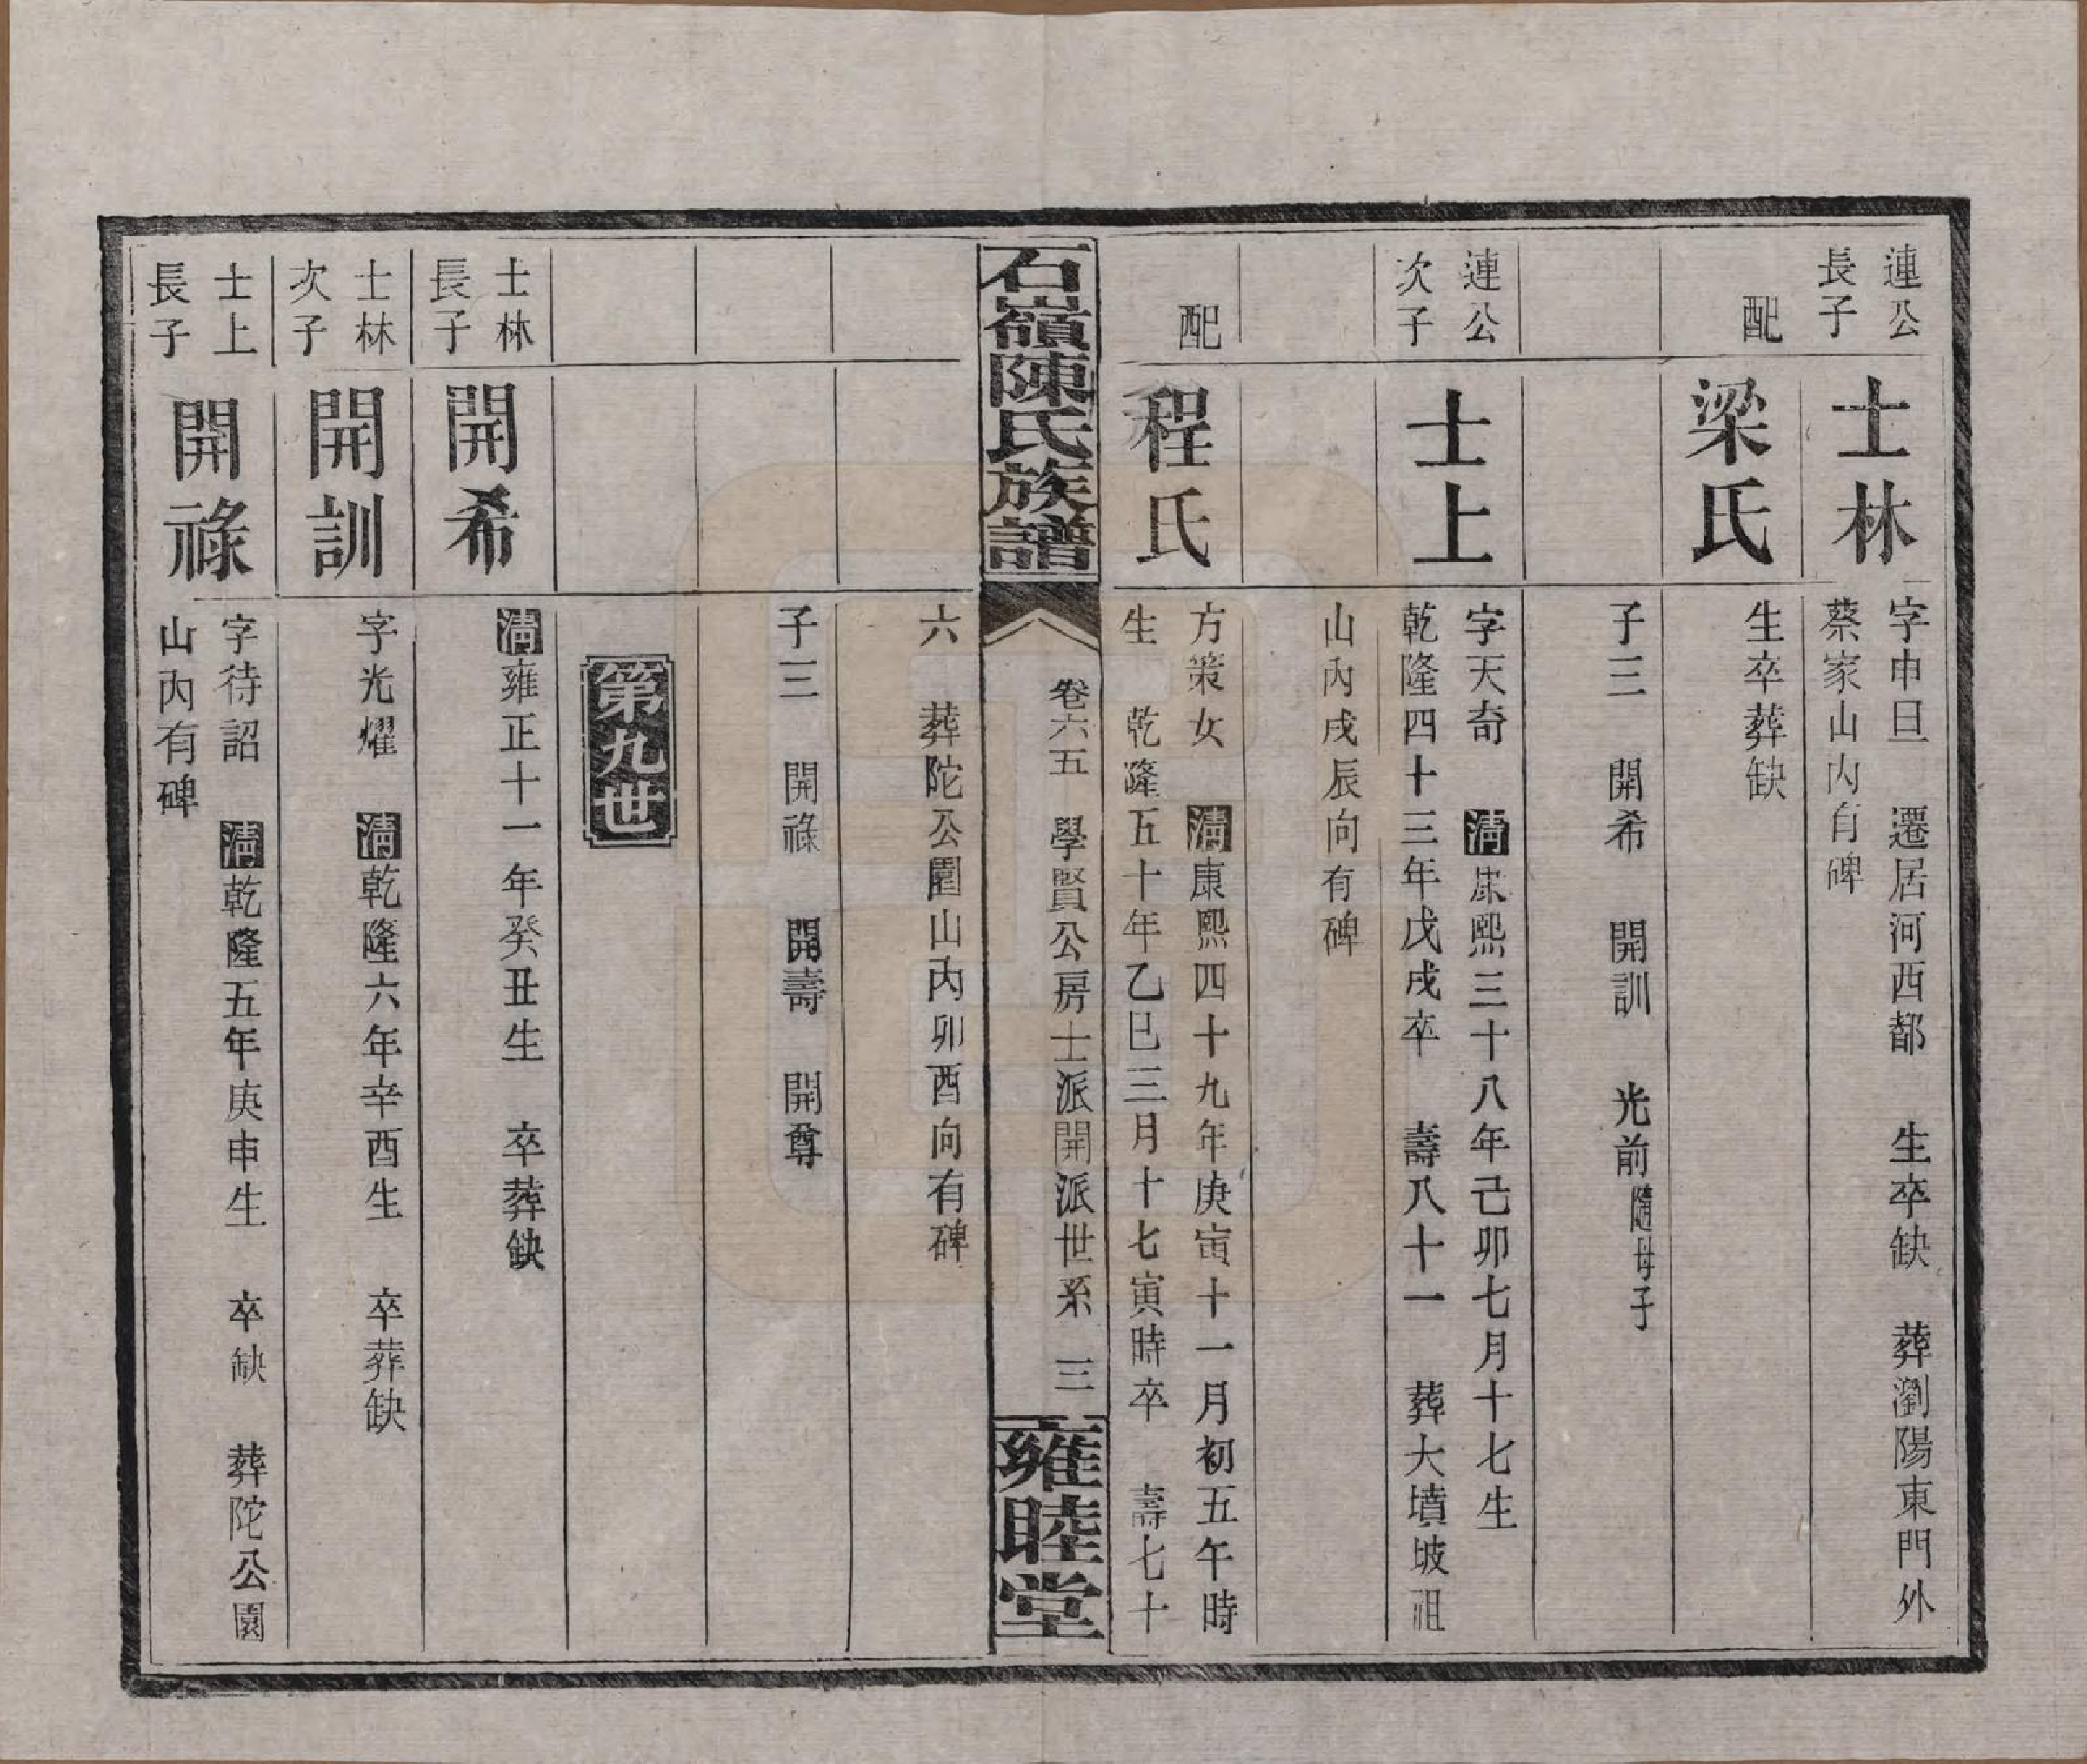 連公
長子
士林
字申旦　遷居河西都　生卒缺　葬瀏陽東門外
蔡家山內有碑
配
梁氏
生卒葬缺
子三　開希　開訓　光前隨母子
連公
次子
士上
字天奇　清康熙三十八年己卯七月十七生
乾隆四十三年戊戌卒　壽八十一　葬大墳坡祖
山內戌辰向有碑
配
程氏
方策女　清康熙四十九年庚寅十一月初五午時
生　乾隆五十年乙巳三月十七寅時卒　壽七十
石嶺陳氏族譜
卷六五　學賢公房士派開派世系　三
雍睦堂
六　葬陀公園山內卯酉向有碑
子三　開祿　開壽　開尊
第九世
士林
長子
開希
清雍正十一年癸丑生　卒葬缺
士林
次子
開訓
字光耀　清乾隆六年辛酉生　卒葬缺
士上
長子
開祿
字待詔　清乾隆五年庚申生　卒缺　葬陀公園
山內有碑